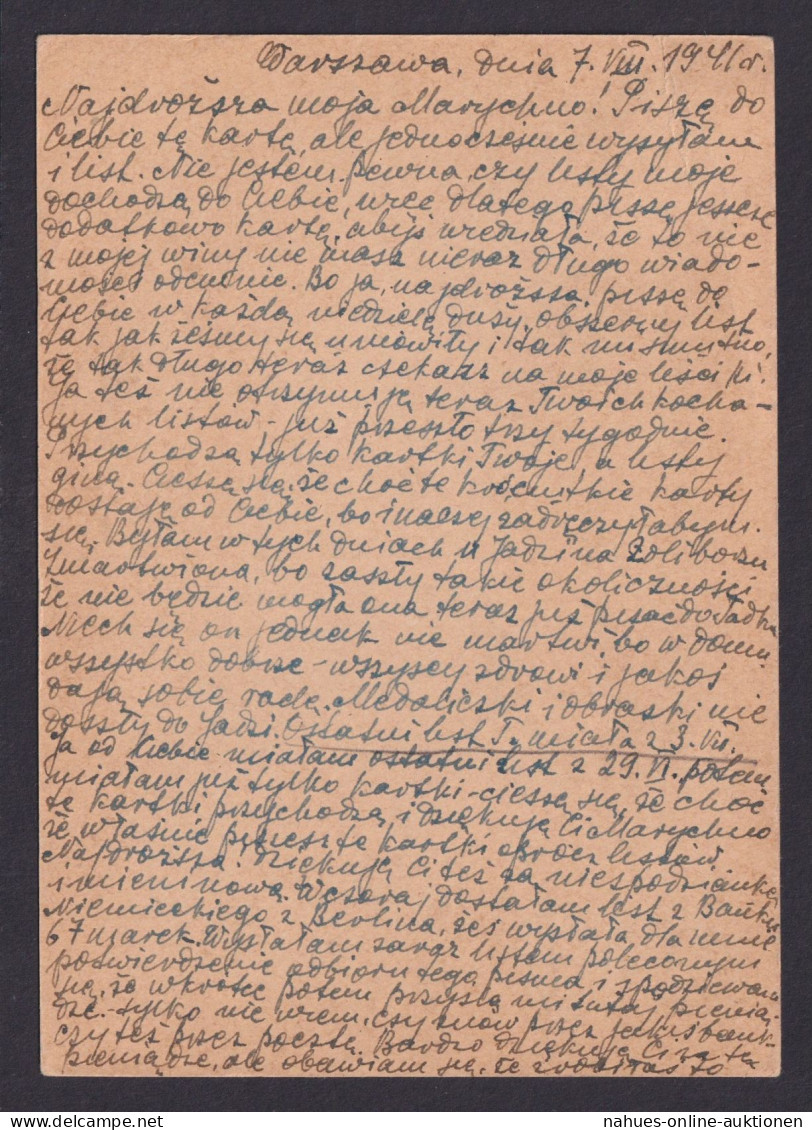 Warszawa, dnia 7. VIII. 1941 r.
Najdroższa moja Marychno! Piszę do
Ciebie tę kartę, ale jednocześnie wysyłam
i list. Nie jestem pewna, czy listy moje
dochodzą do Ciebie, więc dlatego piszę jeszcze
dodatkowo kartę, abyś wiedziała, że to nie
z mojej winy nie masz nieraz długo wiado-
mości odemnie. Bo ja, najdroższa, piszę do
Ciebie w każdą niedzielę duży, obszerny list
tak jak żeśmy się umówiły i tak mi smutno,
że tak długo teraz czekasz na moje liści ki.
Ja też nie otrzymuję teraz Twoich kocha-
nych listów - już przeszło trzy tygodnie.
Przychodzą tylko kartki Twoje, a listy
giną. Cieszę się, że choć te króciutkie karty
dostaję od Ciebie, bo inaczej zadręczyłabym
się. Byłam w tych dniach u Jadzi na Żoliborzu
Zmartwiona, bo zaszły takie okoliczności
że nie będzie mogła ona teraz już pisać do
Niech się on jednak nie martwi, bo w domu
wszystko dobrze - wszyscy zdrowi i jakoś
dają sobie radę. Medaliczki i obrazki nie
doszły do Jadzi. Ostatni list miała z 3. VII.
Ja od Ciebie miałam ostatni list z 29. VI. potem
miałam już tylko kartki - cieszę się, że choć
te kartki przychodzą i dziękuję Ci Marychno
że właśnie piszesz te kartki oprócz listów
Najdroższa! dziękuję Ci też za niespodziankę
imieninową. Wczoraj dostałam list z Banku
Niemieckiego z Berlina, żeś wysłała dla mnie
67 marek. Wysłałam zaraz listem poleconym
potwierdzenie odbioru tego pisma i spodziewam
się, że wkrótce potem przyślą mi tutaj pienią-
dze - tylko nie wiem, czy znów przez jakiś bank
czy też przez pocztę. Bardzo dziękuję Ci za te
pieniądze, ale obawiam się, że zrobiłaś to
nahues-online-auktionen